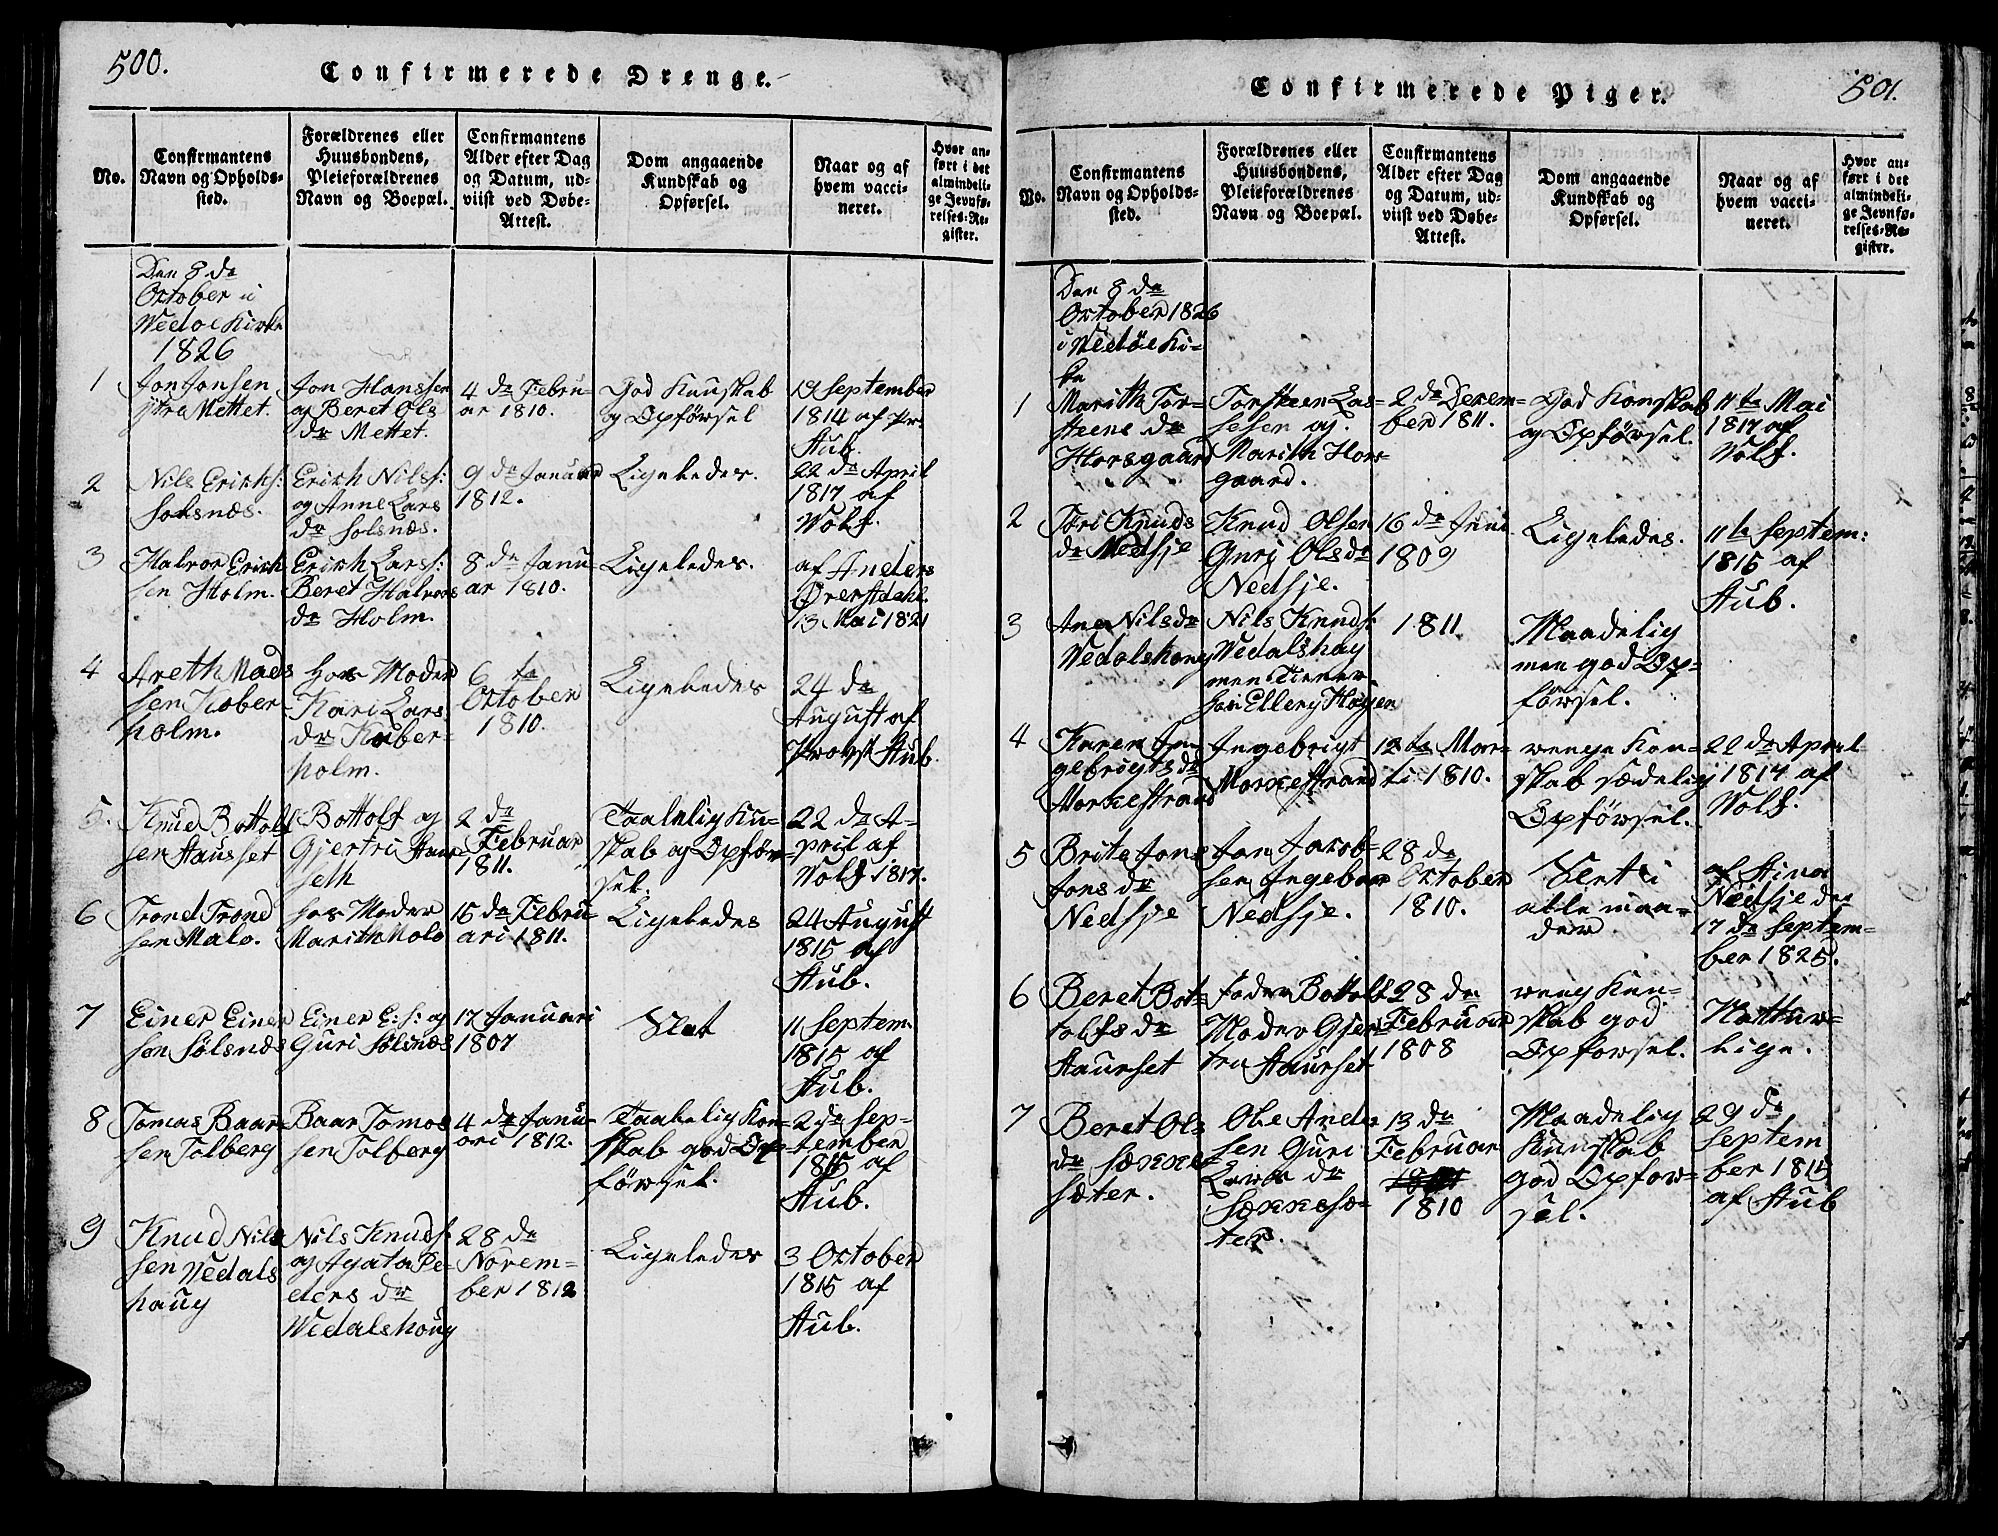 500.
Confirmerede Drenge.
No.
Confirmantens
Navn og Opholds-
sted.
Forældrenes eller
Huusbondens,
Pleieforældrenes
Navn og Boepæl.
Confirmantens
Alder efter Dag
og Datum, ud-
viist ved Døbe-
Attest.
Dom angaaende
Kundskab og
Opførsel.
Naar og af
hvem vacci-
neret.
Hvor an-
ført i det
almindeli-
ge Jevnfø-
relses-Re-
gister.
Den 8 de
October i
Wedøe Kirke
1826
1
Jon Jonsen
ÿtre Mettet.
Jon Hanssen
og Beret Ols
dr Mettet.
4 de Febru-
ar 1810.
God Kunskab
og Opförsel
13 September
1814 af Pr.
Stub.
2
Nils Erichs:
Solsnæs.
Erich Nils:
og Anne Lars
dr Solsnæs.
9 de Januar
1812.
Ligeledes.
22 de April
1817 af
Wolf.
3
Halvor Erich
sen Holm.
Erich Lars:
Beret Halvors
dr Holm.
8 de Janu-
ar 1810.
Ligeledes.
af Anders
Øverstdahl
13 Mai 1821
4
Areth Mads
sen Kober-
holm.
Hos Moder
Kari Lars
dr Kober-
holm.
6 te
October
1810.
Ligeledes
24 de
August af
Provst Stub.
5.
Knud Bottolf
sen Hausset
Bottolf og
Gjertri Haur-
seth
2 de
Februar
1811.
Taalelig Kun-
skab og Opför-
sel.
22 de A-
pril af
Wolf 1817.
6
Trond Trond
sen Malo.
hos Moder
Marith Molo
15 de Febru-
ari 1811.
Ligeledes
24 August
1815 af
Stub.
7
Einer Einer
sen Sølsnæs
Einer E: s: og
Guri Sølsnæs
17 Januari
1807
Slet
11 Septem.
1815 af
Stub.
8
Tomas Baar
sen Tolberg
Baar Tomas
sen Tolberg
4 de Janu-
ari 1812.
Taalelig Kon-
skab god Op-
förssel.
2 de Sep-
tember
1815 af
Stub.
9
Knud Nils
sen Wedals
haug
Nils Knuds:
og Agata Pe-
ders dr
Wedalshoug
28 de
Novem-
ber 1812
Ligeledes
3 October
1815 af
Stub.
501.
Confirmerede Piger.
No.
Confirmantens
Navn og Opholds-
sted.
Forældrenes eller
Huusbondens,
Pleieforældrenes
Navn og Boepæl.
Confirmantens
Alder efter Dag
og Datum, ud-
viist ved Døbe-
Attest.
Dom angaaende
Kundskab og
Opførsel.
Naar og af
hvem vacci-
neret.
Hvor an-
ført i det
almindeli-
ge Jevnfø-
relses-Re-
gister.
Den 8 de
October 1826
i Wedöe Ki-
ke
1
Marith Tor-
steens dr
Horsgaard
Torsteen Las-
sesen og
Marith Hors-
gaard.
2 de Decem-
ber 1811.
God Konskab
og Opförsel.
11 te Mai
1817 af
Wolf.
2
Tøri Knuds
dr Nedsje
Knud Olsen
Guri Olsdr
Nedsje.
16 de Juni
1809
Ligeledes.
11 te Septem:
1815 af
Stub.
3
Ane Nilsdr
Wedalshoug
Nils Knuds:
Wedalshaug
men Tiener
Elling Høgen
1811
Maadelig
men god Op-
försel.
4
Karen In-
gebrigtsdr
Morkestrand
Ingebrigt
Morkestrand
12 te Mar-
ti 1810.
wenge Kon-
skab sædelig
Opförsel.
22 de April
1817 af
Wolf.
5
Brite Jone
Jons dr
Nedsje
Jon Jacob-
sen Ingebor
Nedsje.
28 de
October
1810.
Slet i
alle maa-
der.
af Stina
Nedsje de
17 de Septem-
ber 1825.
6
Beret Bot-
tolfs dr
Haurset
Fader Bottolf
Moder Gjer-
tru Haurset
28 de
Februar
1808
weng Kun-
skab god
Opforsel.
Nattur-
lige.
7
Beret Ols
dr Søkke
sæter.
Ole Anders
sen Guri
Lars dr
Søkkesæ-
ter.
13 de
Februar
1810
Maadelig
Kunskab
god Opfor-
sel.
29 de
Septem
ber 1815
af Stub